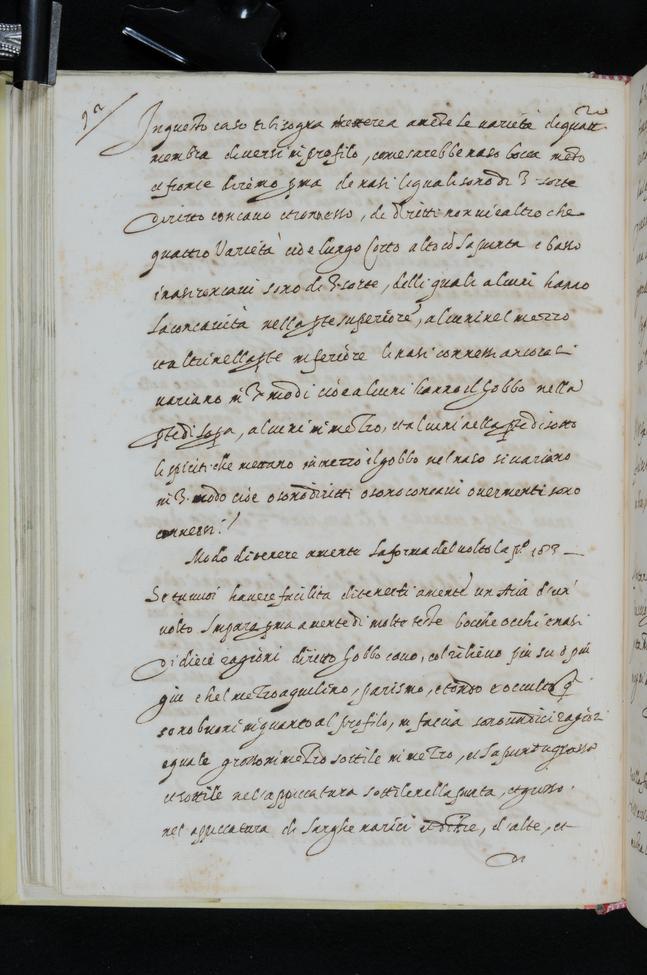 92
In questo caso ti bisogna mettere a mente le varietà di quattro
membra diversi in profilo, come sarebbe naso bocca mento
et fronte diremo pma de nasi li quali sono di 3 sorte
diritto concavo et convesso, de diritti non vi è altro che
quattro varietà cioè lungo corto alto cō la punta e basso
i nasi concavi sono di 3 sorte, delli quali alcuni hanno
la concavità nella pte superiore, alcuni nel mezzo
et altri nella pte inferiore li nasi connessi ancora
variano in 3 modi cioè alcuni hanno il gobbo nella
pte di sopa, alcuni in mezzo, et alcuni nella pte di sotto
li spiciti che mettano in mezzo il gobbo nel naso si variano
in 3 modo cioè o sono diritti o sono concavi overmenti sono
connessi
Modo di tenere a mente la forma del volto la pº 183
Se tu vuoi havere facilita di tenerti a mente un Aria d'un'
volto Impara pma a mente di molte teste bocche occhi e nasi
Di dieci ragioni diritto gobbo cavo, col rilievo più su o più
giu che l mezzo aquilino, parismo, et tondo et occulto q
sono buoni in quanto al profilo, in faccia sono undici ragioni
eguale grosso in mezzo sottile in mezzo, et la punta grossa
et sottile nel'appiccatura sottile nella punta, et grosso
nel appiccatura di larghe narici et strette, d'alte, et
di